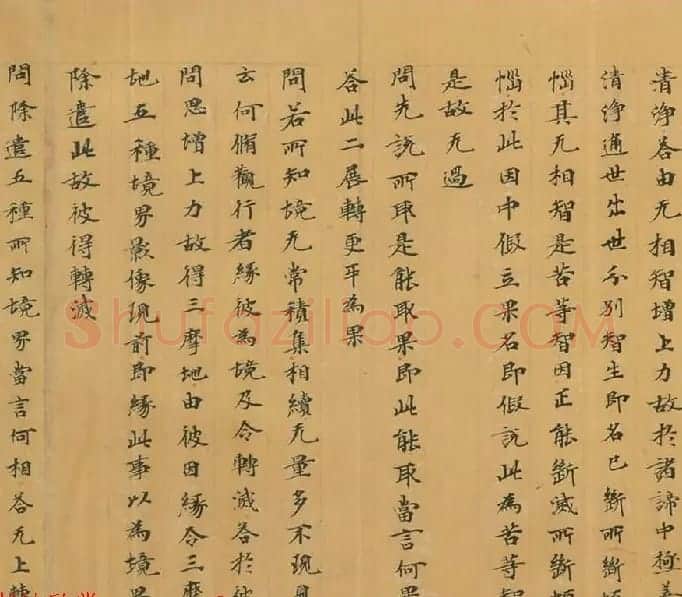 清淨荅由无相智增上力故於諸諦中極善
清淨通世出世分別智生即名已斷所斷煩
惱其无相智是苦等智因正能斷滅所斷煩
惱於此因中假立果名即假説此為苦等智
是故无過
問先説所取是能取果即此能取當言何果
荅此二展轉更互為果
問若所知境无常積集相續无量多不現見
云何脩觀行者緣彼為境及令轉滅荅於彼
問思增上力故得三摩地由彼因緣令三摩
地五種境界影像現前即緣此事以為境界
除遣此故彼得轉滅
問除遣五種所知境界當言何相荅无上轉
Shufaziliao.COM